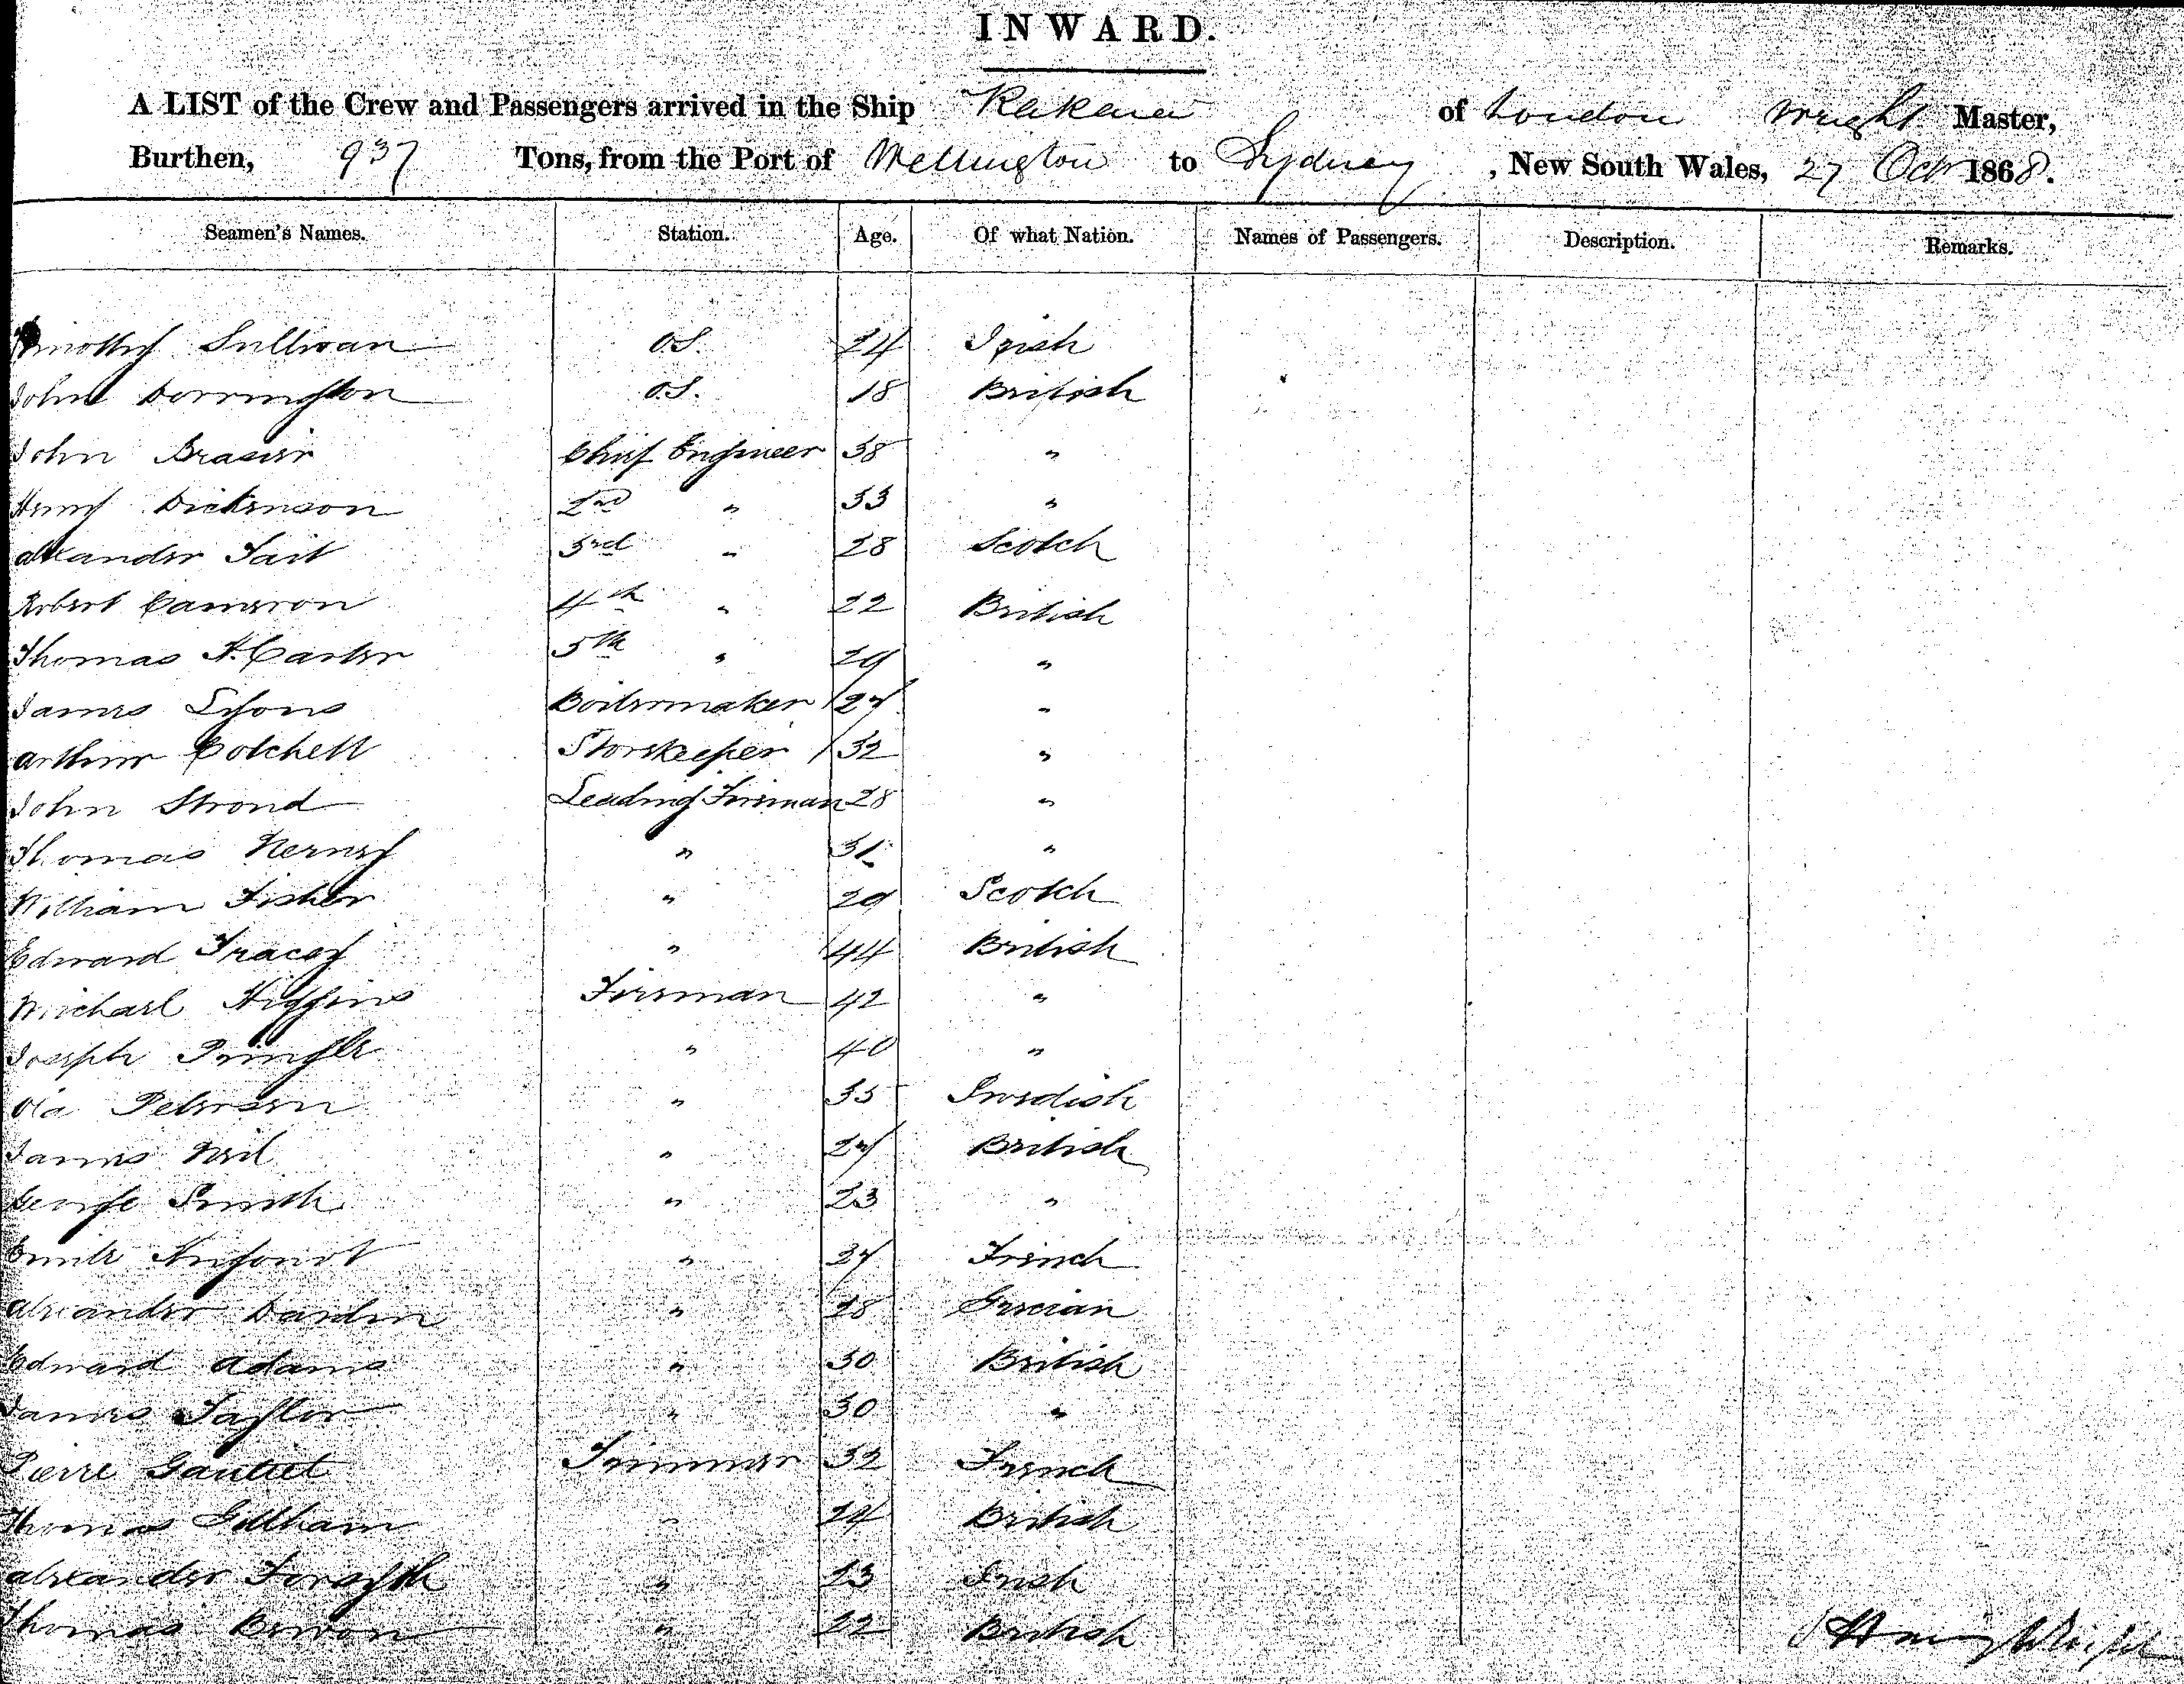 INWARD.
A LIST of the Crew and Passengers arrived in the Ship Kakaia of London Wright Master,
Burthen, 937 Tons, from the Port of Wellington to Sydney, New South Wales, 27 Octr 1868.
Seamen's Names. Station. Age. Of what Nation. Names of Passengers. Description. Remarks.
Timothy Sullivan O.S. 24 Irish
John Dorrington O.S. 18 British
John Brasier Chief Engineer 38 "
Henry Dickenson 2nd " 33 "
Alexander Tait 3rd " 28 Scotch
Robert Cameron 4th " 22 British
Thomas H. Carter 5th " 29 "
James Lyons Boilermaker 27 "
Arthur Cotchett Storekeeper 32 "
John Strond Leading Fireman 28 "
Thomas Nerney " 31 "
William Fisher " 29 Scotch
Edward Tracey " 44 British
Michael Higgins Fireman 42 "
Joseph Pringle " 40 "
Ola Petersen " 35 Swedish
James Neil " 27 British
George Smith " 23 "
Emile " 37 French
Alexander " 28 Grecian
Edward Adams " 30 British
James Taylor " 30 "
Pierre Trimmer 32 French
Thomas Gillham " 24 British
Alexander Forsyth " 23 Irish
Thomas " 22 British